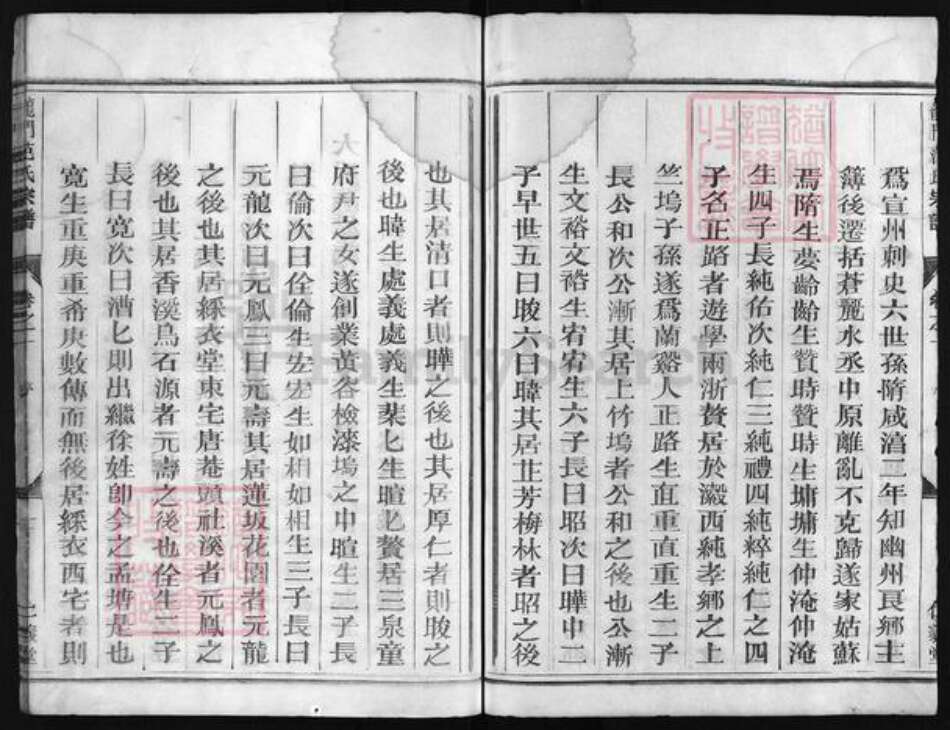 爲宣州刺史六世孫隋咸湻二年知幽州良鄉主
簿後遷括蒼麗水丞中原離亂不克歸遂家姑蘇
焉隋生夢齡齡生贊時贊時生墉墉生仲淹仲淹
生四子長純佑次純仁三純禮四純粹純仁之四
子名正路者遊學兩浙贅居於瀫西純孝鄉之上
竺塢子孫遂爲蘭谿人正路生直重直重生二子
長公和次公漸其居上竹塢者公和之後也公漸
生文裕文裕生宥宥生六子長曰昭次曰曄中二
子早世五曰晙六曰暐其居芷芳梅林者昭之後
也其居清口者則曄之後也其居厚仁者則晙之
後也暐生處義處義生棐匕生暄暄贅居三泉童
府尹之女遂創業黃畬檢漆塢之中暄生二子長
曰倫次曰佺倫生宏宏生如相如相生三子長曰
元龍次曰元鳳三曰元壽其居蓮坂花園者元龍
之後也其居綵衣堂東宅唐菴頭社溪者元鳳之
後也其居香溪烏石源者元壽之後也佺生二子
長曰寬次曰漕匕則出繼徐姓卽今之孟塘是也
寬生重庚重希庚數傳而無後居綵衣西宅者則
龍門范氏宗譜
FamilySearch